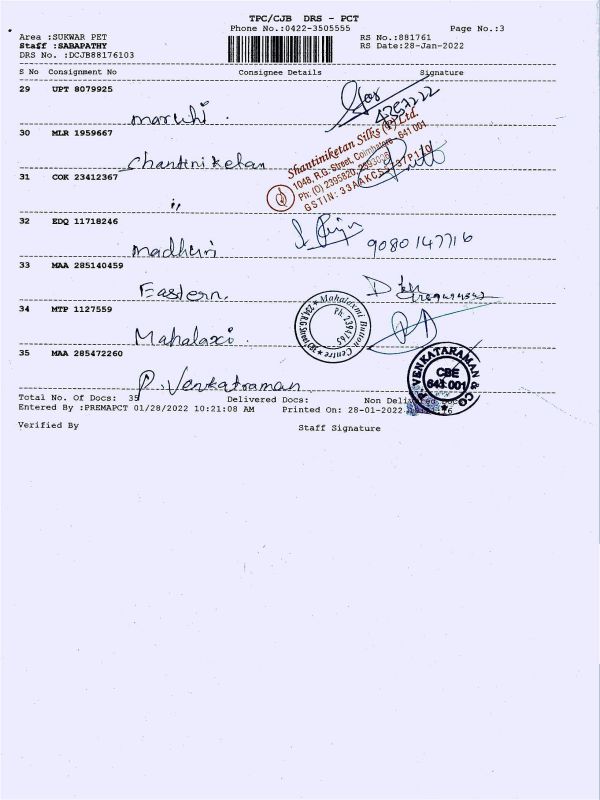 TPC/CJB DRS - PCT
Phone No.:0422-3505555
Page No.:3
Area :SUKWAR PET
RS No.:881761
Staff :SABAPATHY
RS Date:28-Jan-2022
DRS No. :DCJB88176103
S No Consignment No Consignee Details Signature
29 UPT 8079925
maruhi.
30 MLR 1959667
Shantiniketan Silks (P) Ltd.
1048, R.G. Street, Coimbatore - 641 001
Chantiniketan
31 COK 23412367
〃
32 EDQ 11718246
9080147716
madhuri
33 MAA 285140459
Eastern.
34 MTP 1127559
Mahalaxmi Button Centre
Mahalaxi.
35 MAA 285472260
P. VENKATARAMAN & CO
CBE
641 001
P. Venkatraman
Total No. Of Docs: 35 Delivered Docs: Non Delivered Docs:
Entered By :PREMAPCT 01/28/2022 10:21:08 AM Printed On: 28-01-2022
Verified By Staff Signature